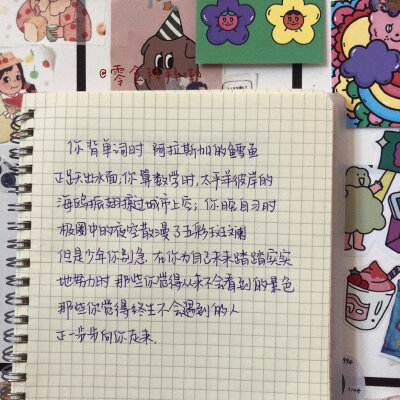 你背单词时 阿拉斯加的鳕鱼
正跃出水面,你算数学时,太平洋彼岸的
海鸥振翅掠过城市上空;你晚自习时
极圈中的夜空散漫了五彩斑斓
但是少年你别急 在你为自己未来踏踏实实
地努力时 那些你觉得从来不会看到的景色
那些你觉得终生不会遇到的人
正一步步向你走来.